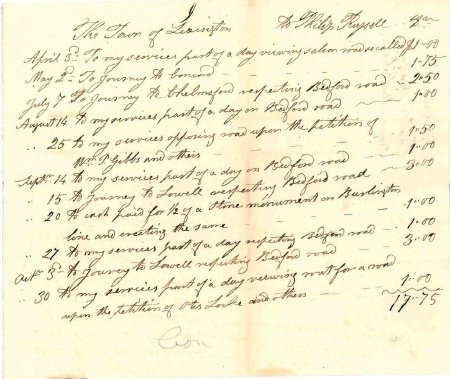 The Town of Lexington To Philip Russell Dr
April 3d To my services part of a day viewing salem road so called $1-00
May 2d To Journey to Concord 1-75
July 7 To Journey to Chelmsford respecting Bedford road 2-50
August 14 to my services part of a day on Bedford road 1-00
" 25 to my services opposing road upon the petition of
Wm P Gibbs and others 1-50
Septr 14 to my services part of a day on Bedford road 1-00
" 15 to Journey to Lowell respecting Bedford road 3-00
" 20 to cash paid for 1/2 of a Stone monument on Burlington
line and erecting the same 1-00
" 27 to my services part of a day respecting Bedford road 1-00
Octr 3d to Journey to Lowell respecting Bedford road 3-00
" 30 to my services part of a day viewing rout for a road
upon the petition of Otis Locke and others 1-00
17-75